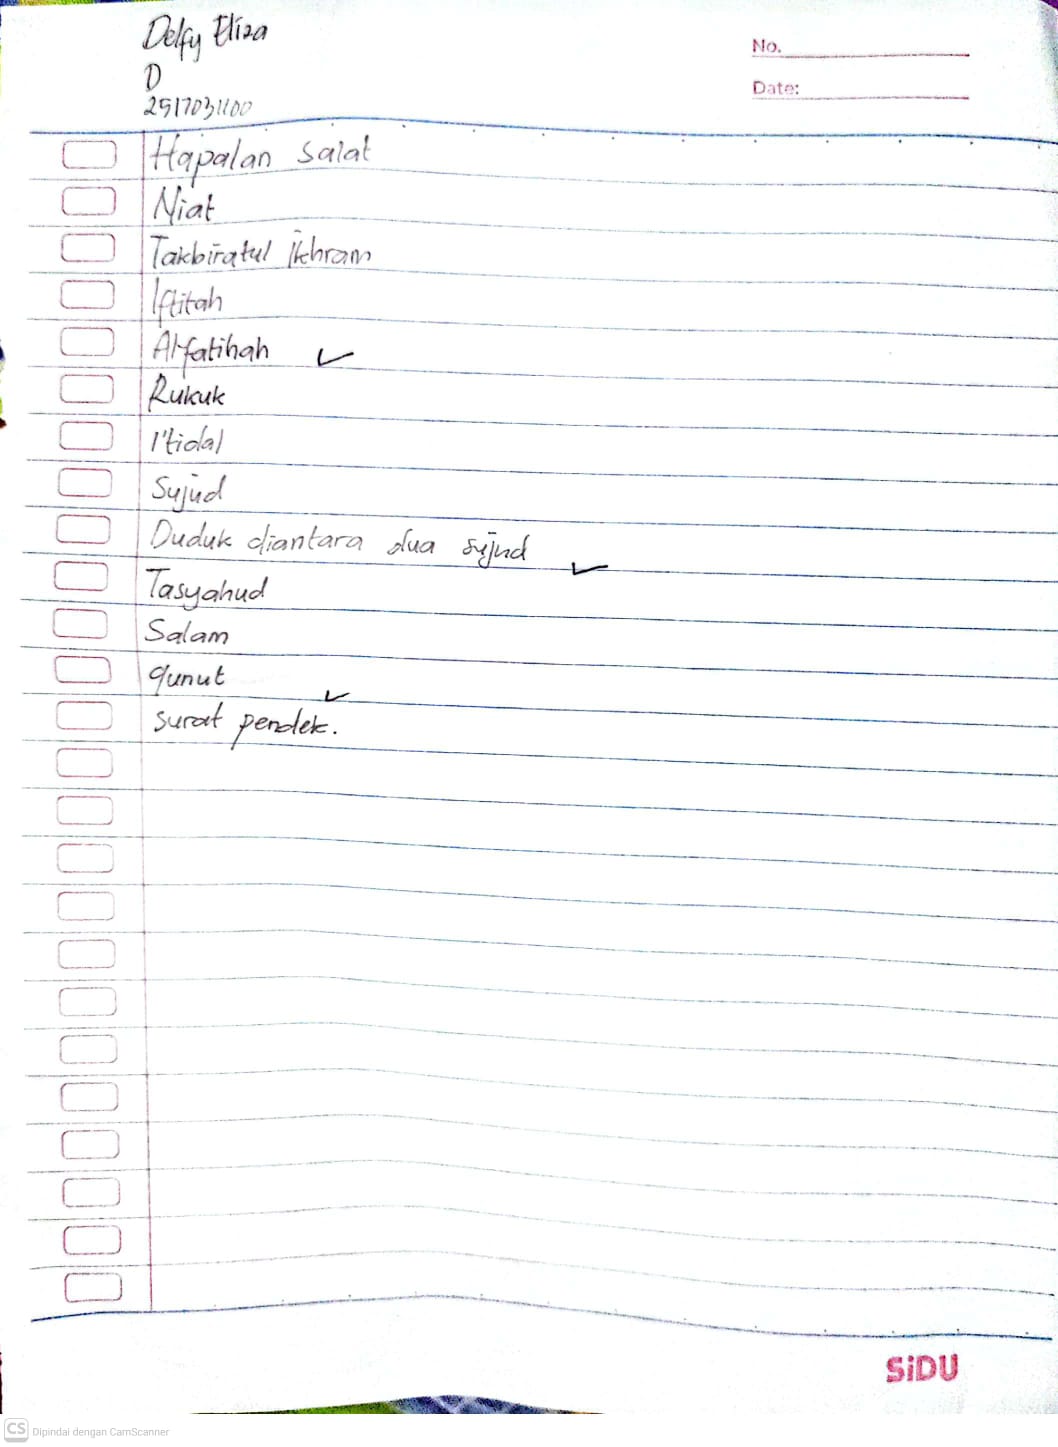 Delfy Eliza
D
2517031100
No.
Date:
Hapalan Salat
Niat
Takbiratul Ikhram
Iftitah
Al-fatihah ✓
Rukuk
I'tidal
Sujud
Duduk diantara dua sujud ✓
Tasyahud
Salam
qunut ✓
surat pendek.
SiDU
CS Dipindai dengan CamScanner